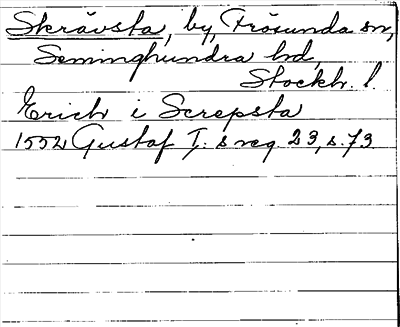 Skrävsta, by, Frösunda sn,
Seminghundra hd,
Stockh. l.
Erich i Screpsta
1552 Gustaf I:s reg 23, s. 73